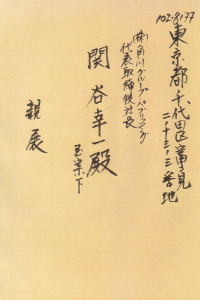 102-8177
東京都千代田区富士見
二ー十三ー三番地
(株)角川グループパブリッシング
代表取締役社長
関谷幸一殿
玉案下
親展